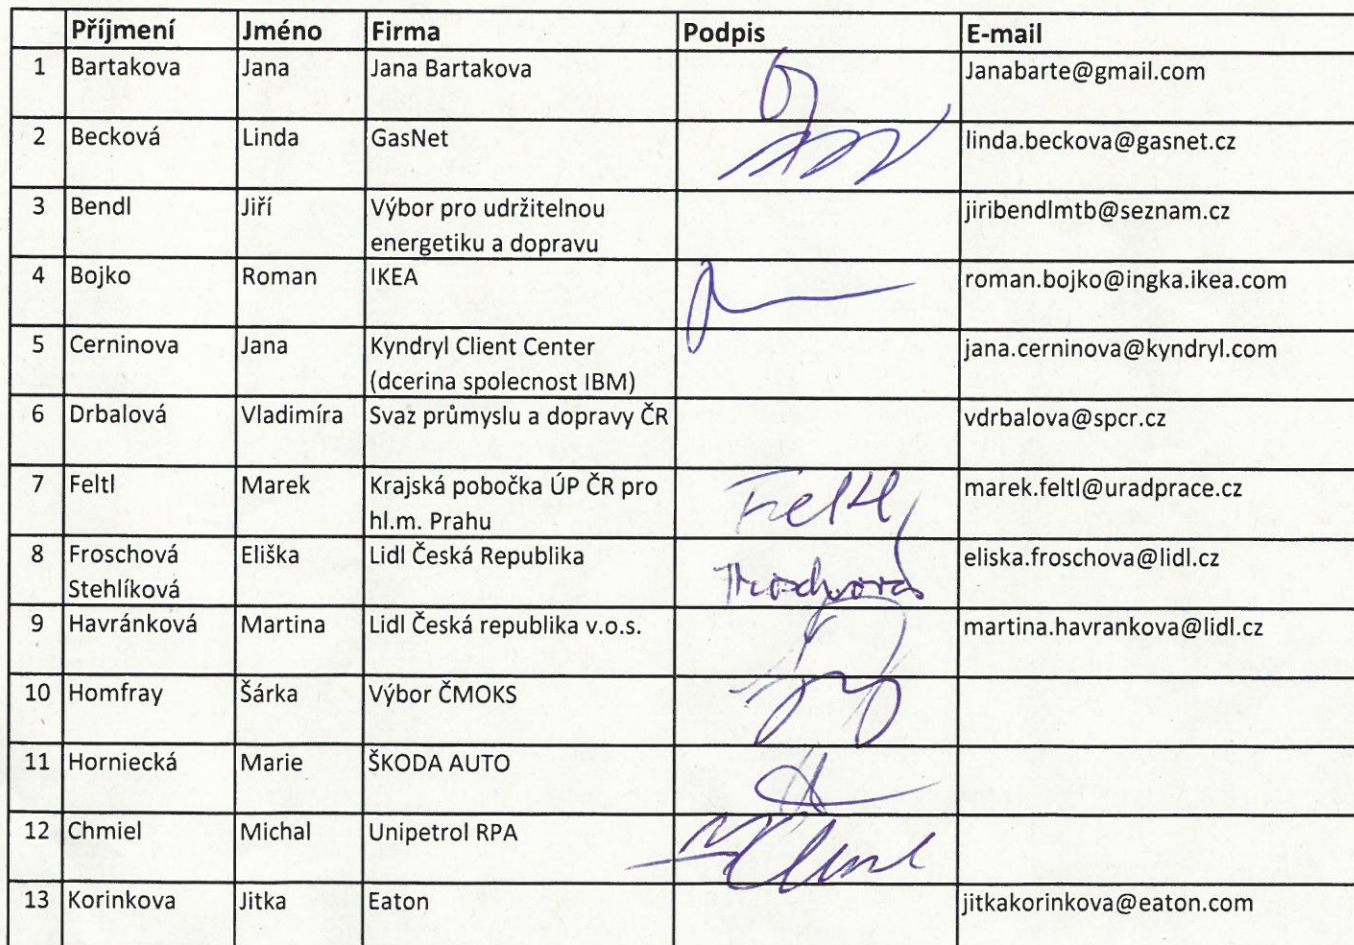 Příjmení Jméno Firma Podpis E-mail
1 Bartakova Jana Jana Bartakova Janabarte@gmail.com
2 Becková Linda GasNet linda.beckova@gasnet.cz
3 Bendl Jiří Výbor pro udržitelnou jiribendlmtb@seznam.cz
energetiku a dopravu
4 Bojko Roman IKEA roman.bojko@ingka.ikea.com
5 Cerninova Jana Kyndryl Client Center jana.cerninova@kyndryl.com
(dcerina spolecnost IBM)
6 Drbalová Vladimíra Svaz průmyslu a dopravy ČR vdrbalova@spcr.cz
7 Feltl Marek Krajská pobočka ÚP ČR pro Feltl marek.feltl@uradprace.cz
hl.m. Prahu
8 Froschová Eliška Lidl Česká Republika eliska.froschova@lidl.cz
Stehlíková
9 Havránková Martina Lidl Česká republika v.o.s. martina.havrankova@lidl.cz
10 Homfray Šárka Výbor ČMOKS
11 Horniecká Marie ŠKODA AUTO
12 Chmiel Michal Unipetrol RPA
13 Korinkova Jitka Eaton jitkakorinkova@eaton.com